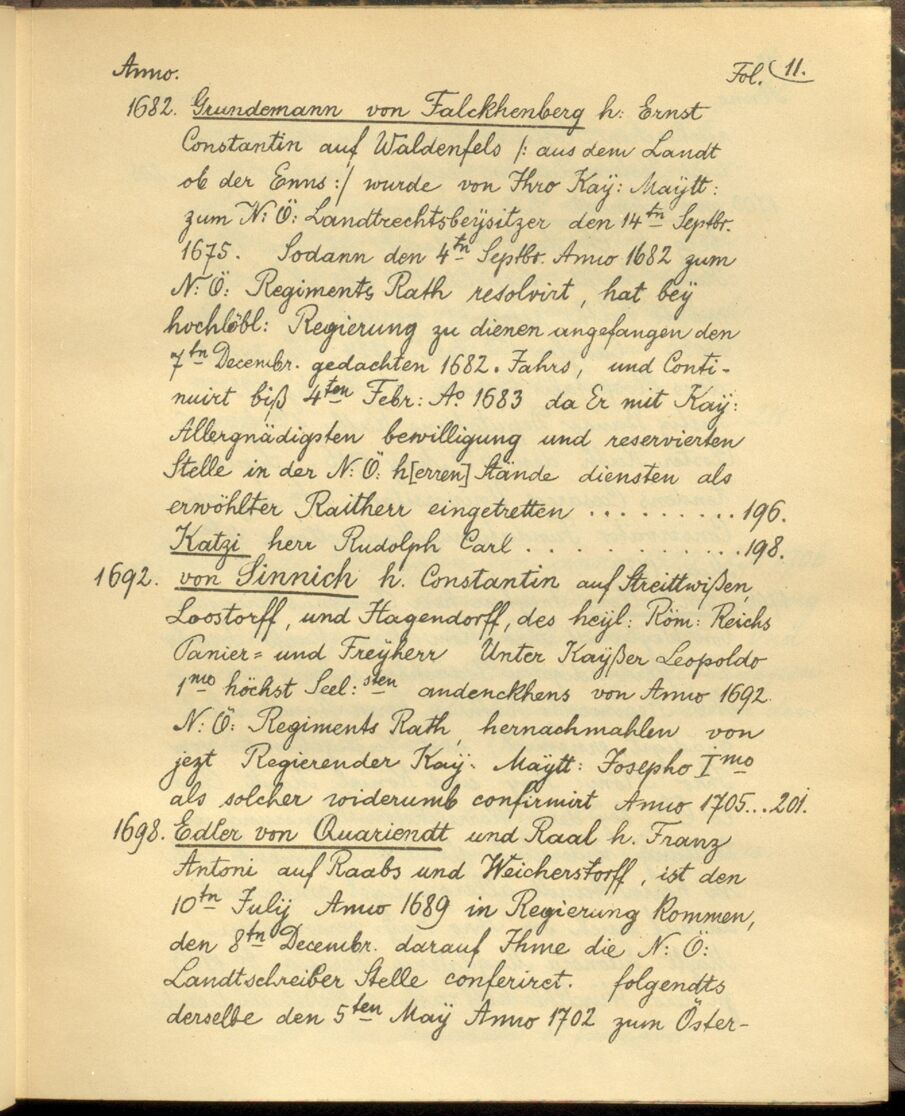 Anno. Fol. 11.
1682. Grundemann von Falckhenberg h: Ernst
Constantin auf Waldenfels /: aus dem Landt
ob der Enns :/ wurde von Ihro Kaÿ: Maÿtt:
zum N: Ö: Landtrechtsbeÿsitzer den 14tn Septbr.
1675. Sodann den 4tn Septbr. Anno 1682 zum
N: Ö: Regiments Rath resolvirt, hat beÿ
hochlöbl: Regierung zu dienen angefangen den
7tn Decembr. gedachten 1682. Jahrs, und Conti-
nuirt biß 4ten Febr: Ao. 1683 da Er mit Kaÿ:
Allergnädigsten bewilligung und reservierten
Stelle in der N: Ö: h[erren] Stände diensten als
erwöhlter Raitherr eingetretten ......... 196.
Katzi herr Rudolph Carl ........... 198.
1692. von Sinnich h. Constantin auf Streittwißen,
Loostorff, und Hagendorff, des heÿl: Röm: Reichs
Panier= und Freÿherr Unter Kaÿßer Leopoldo
1mo höchst Seel: sten andenckhens von Anno 1692
N: Ö: Regiments Rath, hernachmahlen von
jezt Regierender Kaÿ. Maÿtt: Josepho Imo
als solcher widerumb confirmirt Anno 1705...201.
1698. Edler von Quariendt und Raal h. Franz
Antoni auf Raabs und Weicherstorff, ist den
10tn Julÿ Anno 1689 in Regierung kommen,
den 8tn Decembr. darauf Ihme die N: Ö:
Landtschreiber Stelle conferirct. folgendts
derselbe den 5ten Maÿ Anno 1702 zum Öster-